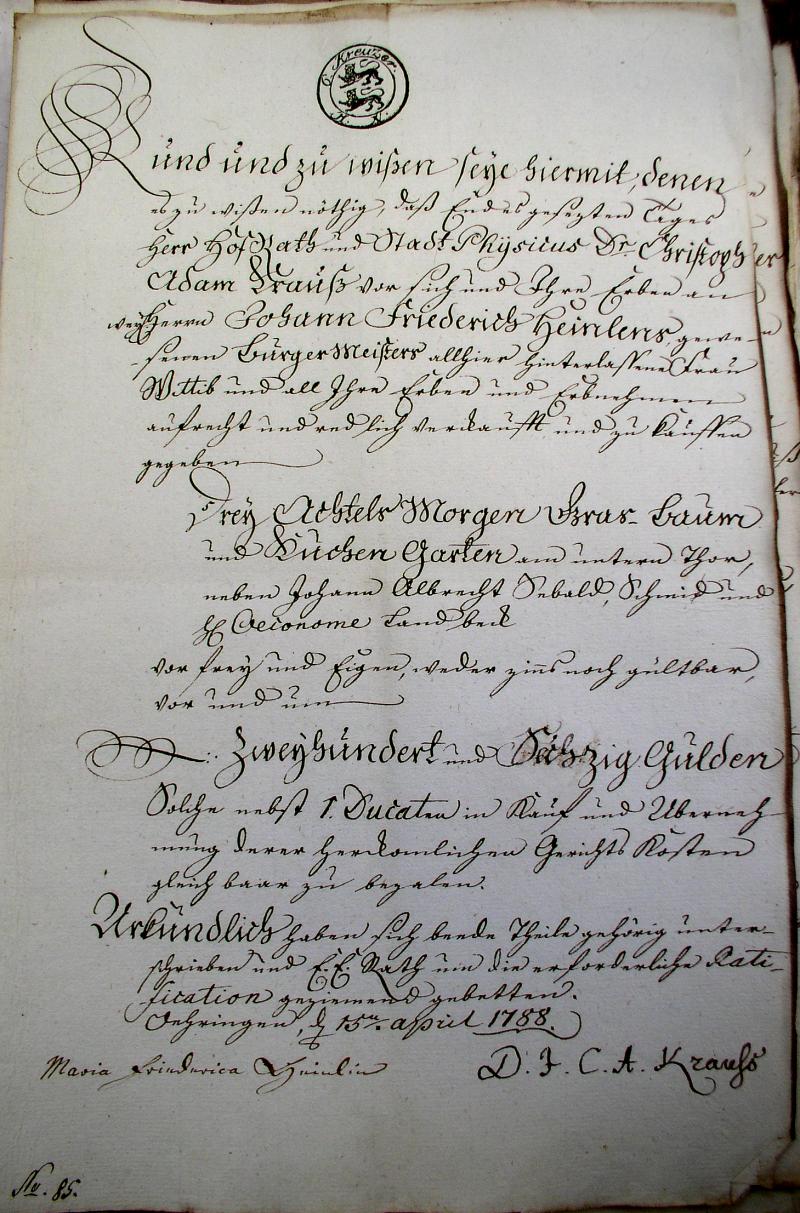 6. Kreuzer.
H. N.
Kund und zu wißen seye hiermit, denen
es zu wißen nöthig, daß Endes gesezten Tages
Herr HofRath und Stadt Physicus Dr. Christoph
Adam Krauß vor sich und Ihre Erben an
weyl. Herrn Johann Friederich Heinlens, gewe-
senen BurgerMeisters allhier hinterlassene Frau
Wittib und all Ihre Erben und Erbnehmen
aufrecht und redlich verkaufft und zu kauffen
gegeben
Drey Achtels Morgen Gras- Baum
und Kuchen Garten am untern Thor,
neben Johann Albrecht Sebald, Schmid und
H. Oeconome Landbeck
vor frey und Eigen, weder zinns noch gültbar,
vor und um
Zweyhundert und Sechzig Gulden
Solche nebst 1. Ducaten in Kauf und Überneh-
mung derer herckomlichen Gerichts Kosten
gleich baar zu bezalen.
Urkundlich haben sich beede Theile gehörig unter-
schrieben und E. E. Rath um die erforderliche Rati-
fication geziemend gebetten.
Oehringen, d. 15ten april 1788.
Maria Friederica Heinlin
D. F. C. A. Krauss
No. 85.